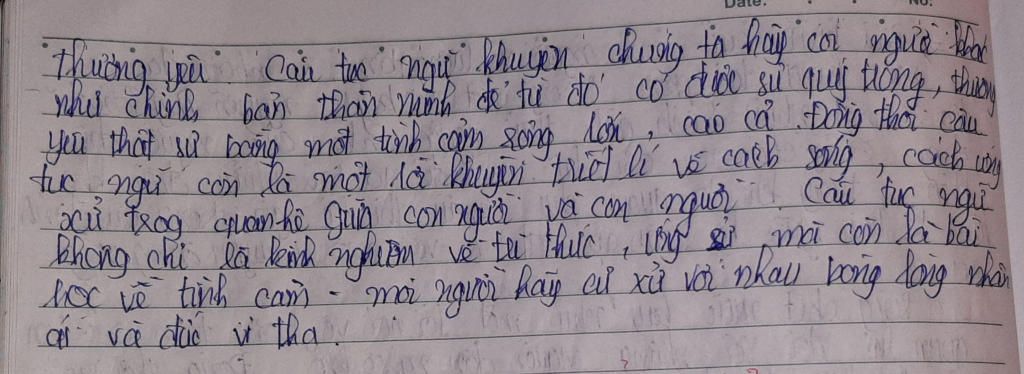 Date: No:
thương yêu. Câu tục ngữ khuyên chúng ta hãy coi người khác
như chính bản thân mình để từ đó có được sự quý trọng, thương
yêu thật sự bằng một tình cảm sống lớn, cao cả. Đồng thời câu
tục ngữ còn là một lời khuyên triết lí về cách sống, cách ứng
xử trog quan hệ giữa con người và con người. Câu tục ngữ
không chỉ là kinh nghiệm về tri thức, ứng sử mà còn là bài
học về tình cảm - mọi người hãy cư xử với nhau bằng lòng nhân
ái và đức vị tha.